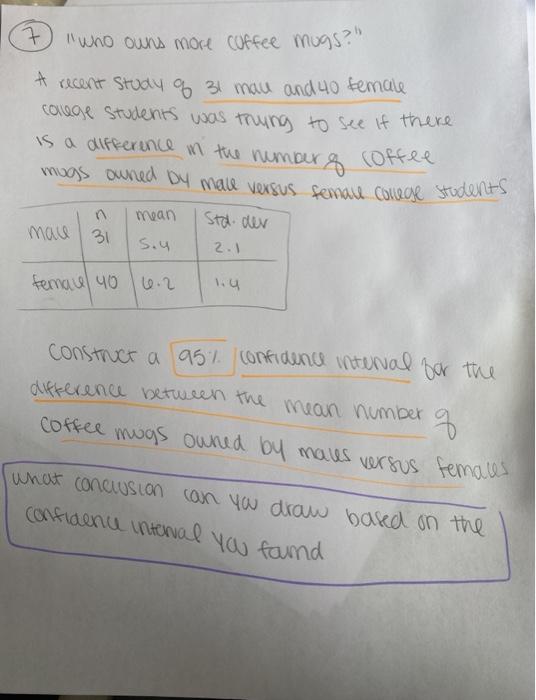 7 "who owns more coffee mugs?"
A recent study of 31 male and 40 female
college students was trying to see if there
is a difference in the number of coffee
mugs owned by male versus female college students
n mean Std. dev
male 31 5.4 2.1
female 40 6.2 1.4
Construct a 95% confidence interval for the
difference between the mean number of
coffee mugs owned by males versus females
what conclusion can you draw based on the
confidence interval you found